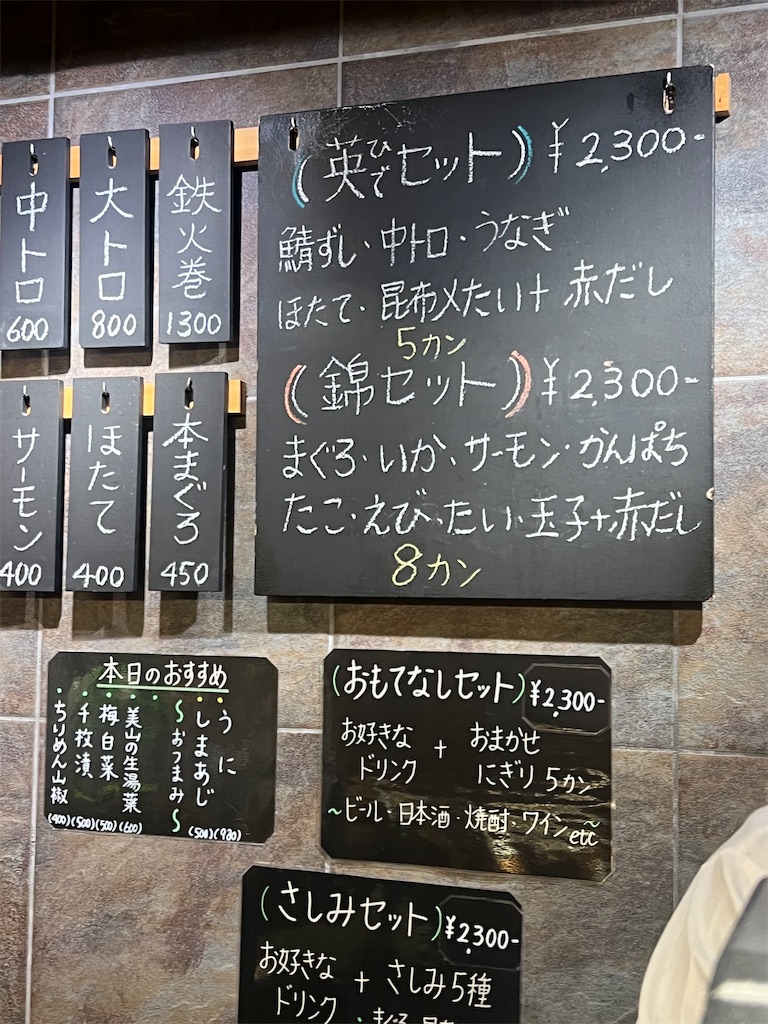 鉄火巻
1300
大トロ
800
中トロ
600
本まぐろ
450
ほたて
400
サーモン
400
(英ひでセット) ¥2,300-
鯖ずし・中トロ・うなぎ
ほたて・昆布〆たい+赤だし
5カン
(錦セット) ¥2,300-
まぐろ・いか、サーモン・かんぱち
たこ・えび・たい・玉子+赤だし
8カン
本日のおすすめ
・うに
(980)
・しまあじ
(500)
〜おつまみ〜
・美山の生湯葉
(600)
・梅白菜
(500)
・千枚漬
(500)
・ちりめん山椒
(400)
(おもてなしセット) ¥2,300-
お好きなドリンク + おまかせにぎり5カン
~ビール・日本酒・焼酎・ワインetc~
(さしみセット) ¥2,300-
お好きなドリンク + さしみ5種